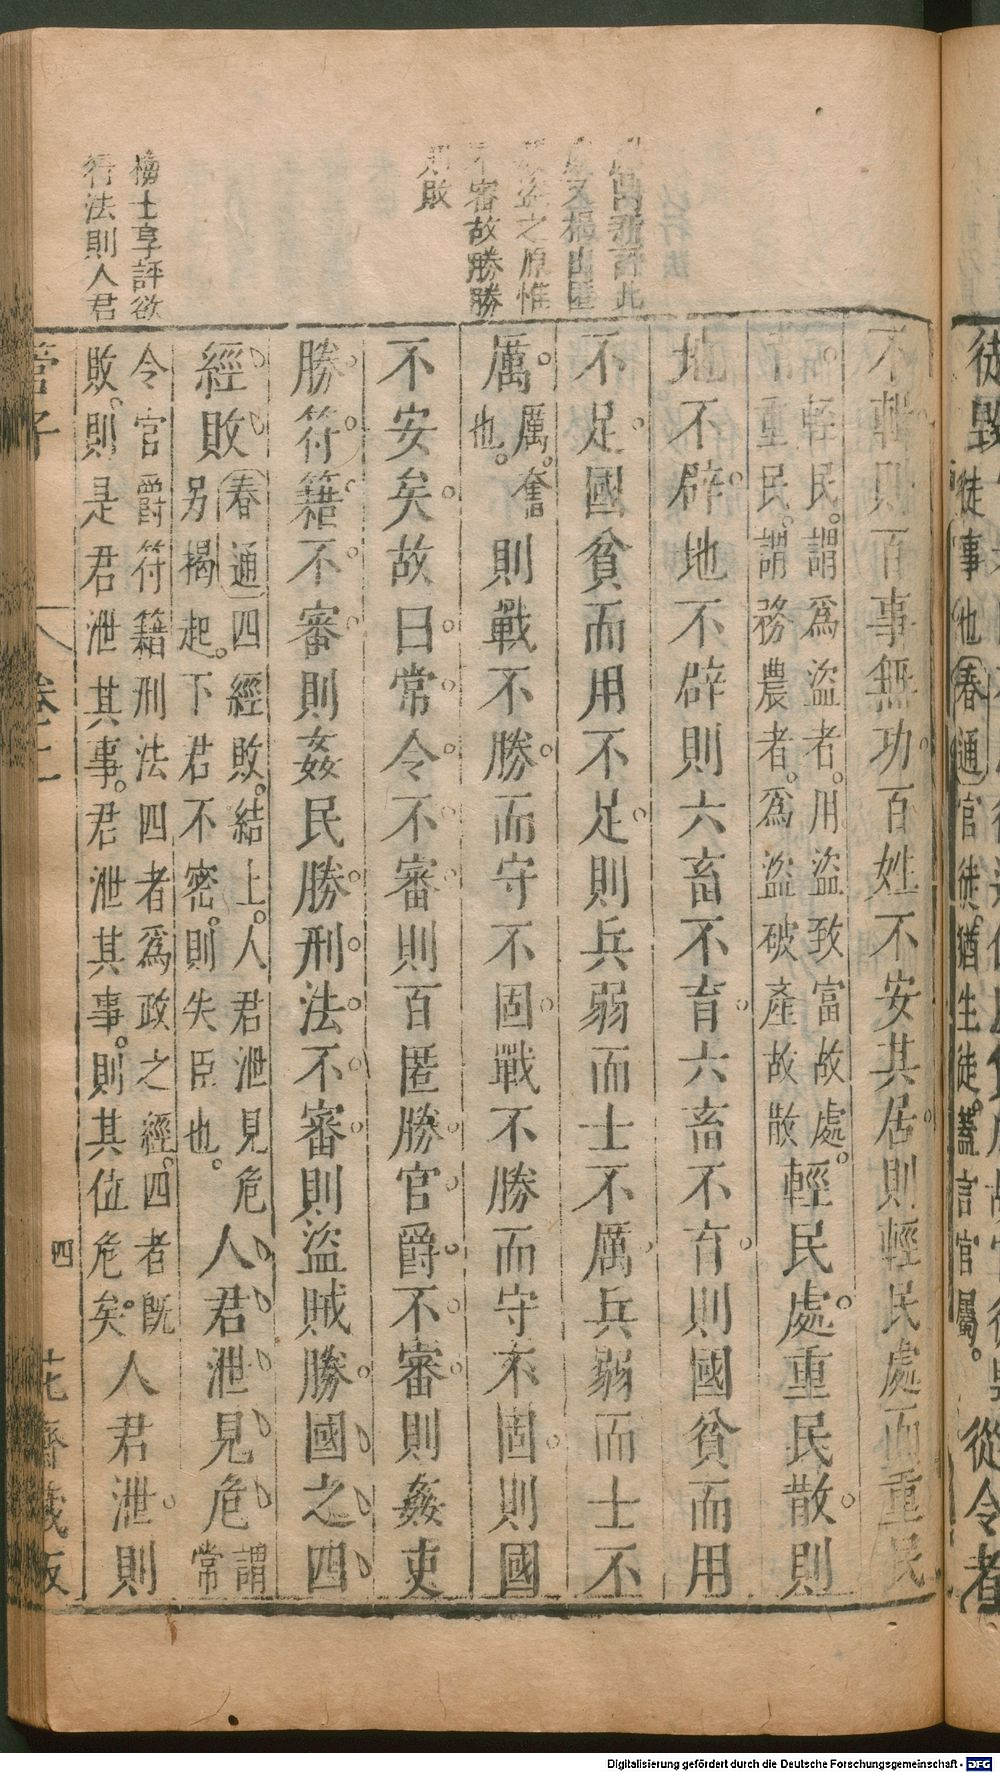 徒事也春通官徒猶生徒。蓋言官屬。
從令者
不輕則百事無功百姓不安其居。則輕民處而重民
重民。謂務農者。爲盜破產故散
輕民。謂爲盜者。用盜致富故處。
輕民處。重民散。則
地不辟。地不辟則六畜不育。六畜不育。則國貧而用
不足。國貧而用不足。則兵弱而士不厲。兵弱而士不
厲。厲。奮也。則戰不勝。而守不固。戰不勝而守不固。則國
不安矣。故曰。常令。不審。則百匿勝。官爵。不審。則姦吏
勝。符籍。不審。則姦民勝。刑法。不審。則盜賊勝。國之四
經敗春通四經敗。結上。人君泄見危
另揭起。下君不密。則失臣也。人君泄見危謂常
令官爵符籍刑法四者爲政之經。四者旣
敗。則是君泄其事。君泄其事。則其位危矣。人君泄。則
不審故勝勝
則敗
梅士享評欲
行法則人君
管子
卷一
四
花齋藏板
Digitalisierung gefördert durch die Deutsche Forschungsgemeinschaft - DFG